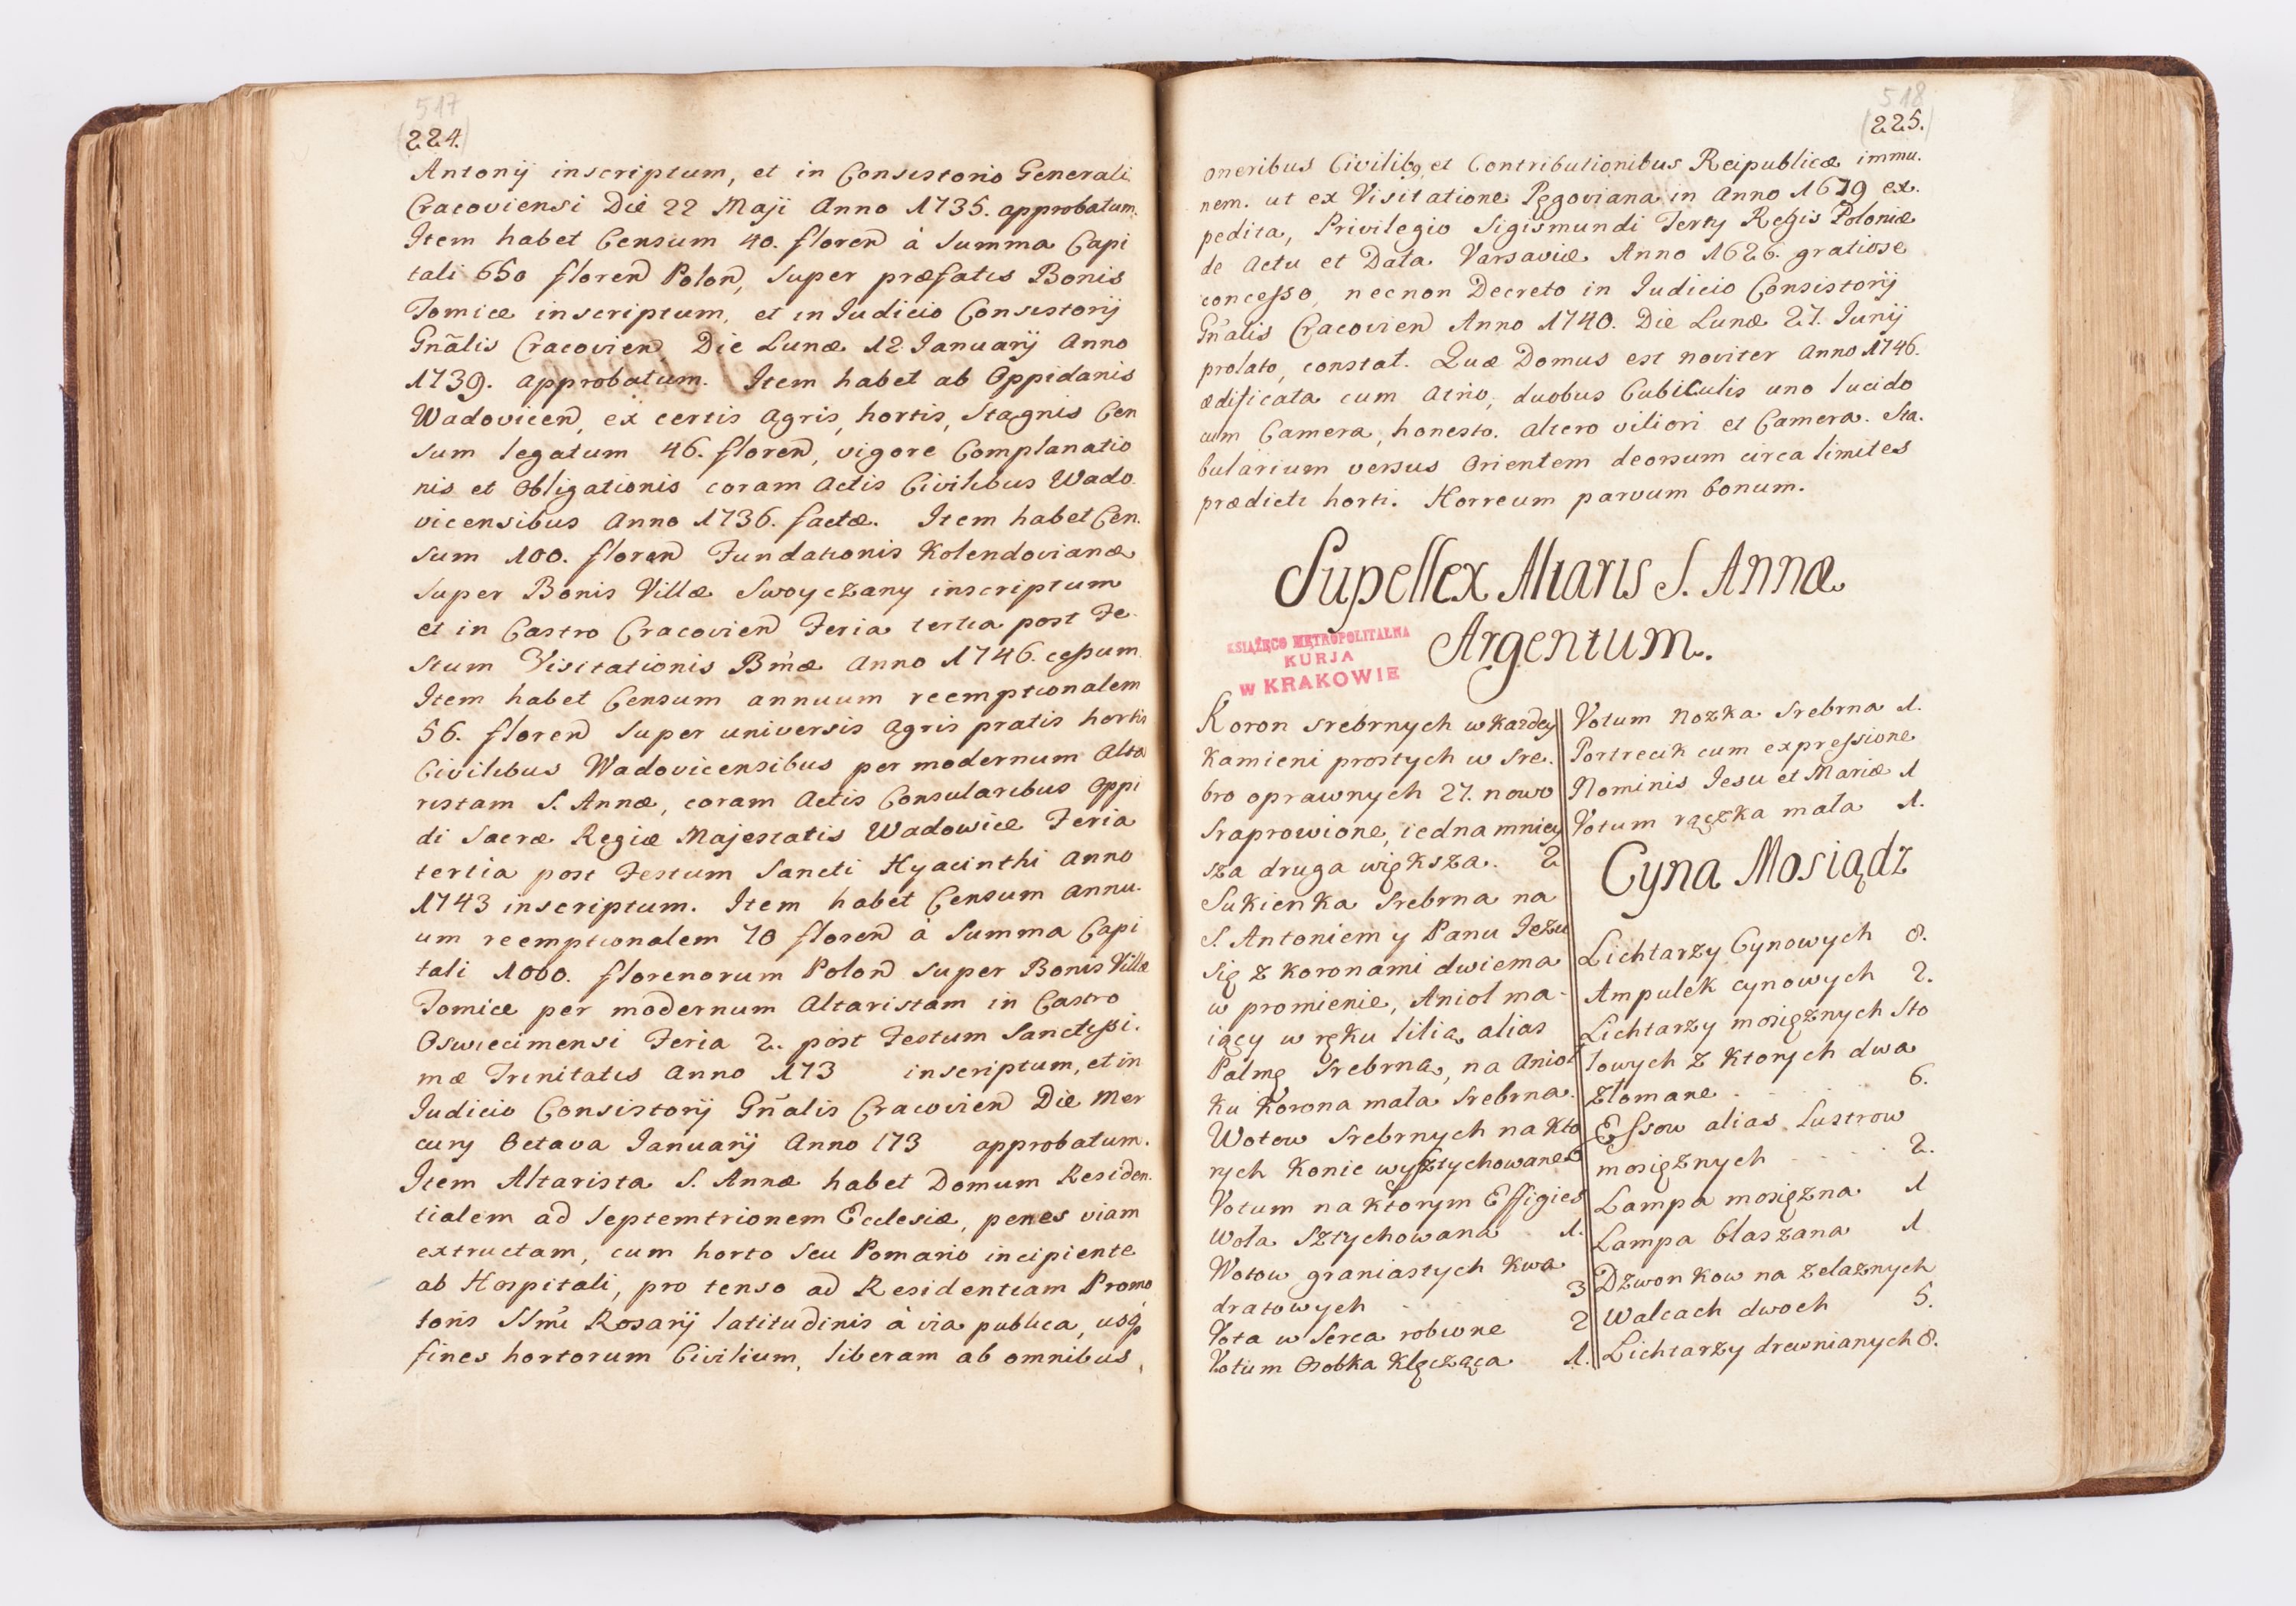 517
224.
Antonij inscriptum, et in Consistorio Generali
Cracoviensi Die 22 Maji Anno 1735. approbatum.
Item habet Censum 40. floren à Summa Capi
tali 660 floren Polon, super præfatis Bonis
Tomice inscriptum, et in Iudicio Consistorij
Gñalis Cracovien Die Lunæ 12 Ianuarij Anno
1739. approbatum. Item habet ab Oppidanis
Wadovicen, ex certis agris, hortis, Stagnis Cen
sum legatum 46. floren, vigore Complanatio
nis et Obligationis coram Actis Civilibus Wado
vicensibus Anno 1736. factæ. Item habet Cen.
sum 100. floren Fundationis Kolendovianæ
super Bonis Villæ Swoyczany inscriptum
et in Castro Cracovien Feria tertia post Fe
stum Visitationis Bmæ Anno 1746. cessum.
Item habet Censum annuum reemptionalem
56. floren super universis agris pratis hortis
Civilibus Wadovicensibus per modernum Alta
ristam S. Annæ, coram Actis Consularibus Oppi
di Sacræ Regiæ Majestatis Wadowice Feria
tertia post Festum Sancti Hyacinthi Anno
1743 inscriptum. Item habet Censum annu.
um reemptionalem 70 floren à Summa Capi
tali 1000. florenorum Polon super Bonis Villæ
Tomice per modernum Altaristam in Castro
Oswiecimensi Feria 2. post Festum Sanctissi.
mæ Trinitatis Anno 173 inscriptum, et in
Iudicio Consistorij Gñalis Cracovien Die Mer
curij Octava Ianuarij Anno 173 approbatum.
Item Altarista S. Annæ habet Domum Residen.
tialem ad Septemtrionem Ecclesiæ, penes viam
extructam, cum horto seu Pomario incipiente
ab Hospitali, pro tenso ad Residentiam Promo
toris SSmi Rosarij latitudinis à via publica, usq
fines hortorum Civilium, liberam ab omnibus
518
225.
oneribus Civilib9 et Contributionibus Reipublicæ immu.
nem. ut ex Visitatione Pęgoviana in Anno 1679 ex.
pedita, Privilegio Sigismundi Tertij Regis Poloniæ
de Actu et Data Varsaviæ Anno 1626. gratiose
concesso, necnon Decreto in Iudicio Consistorij
Gñalis Cracovien Anno 1740. Die Lunæ 27. Iunij
prolato, constat. Quæ Domus est noviter Anno 1746.
ædificata cum Atrio, duobus Cubiculis uno lucido
cum Camera, honesto. altero viliori et Camera. Sta.
bularium versus Orientem deorsum circa limites
prædicti horti. Horreum parvum bonum.
Supellex Altaris S. Annæ
Argentum.
KSIĄŻĘCO METROPOLITALNA
KURJA
W KRAKOWIE
Koron srebrnych w Kazdey
Kamieni prostych w Sre.
bro oprawnych 27. nowo
Sraprowione, iedna mniey
sza druga większa. 2
Sukienka Srebrna na
S. Antoniem y Panu Iezu
się z koronami dwiema
w promienie, Aniol ma
iący w ręku lilią alias
Palmę Srebrna, na Aniol
ku Korona mala Srebrna.
Wotow Srebrnych na Kto
rych Konie wysztychowane 2
Votum na ktorym Effigies
Wola Sztychowana 1.
Wotow graniastych Kwa
dratowych 3
Vota w Serca robione 2
Votum Osobka Klęcząca 1.
Votum Nozka Srebrna 1.
Portrecik cum expressione
Nominis Iesu et Mariæ 1
Votum rączka mała 1.
Cyna Mosiądz
Lichtarzy Cynowych 8.
Ampulek cynowych 2.
Lichtarzy mosięznych Sto
lowych z ktorych dwa
złomane 6.
Essow alias Lustrow
mosięznych 2.
Lampa mosięzna 1
Lampa blaszana 1
Dzwonkow na zelaznych
Walcach dwoch 5.
Lichtarzy drewnianych 8.